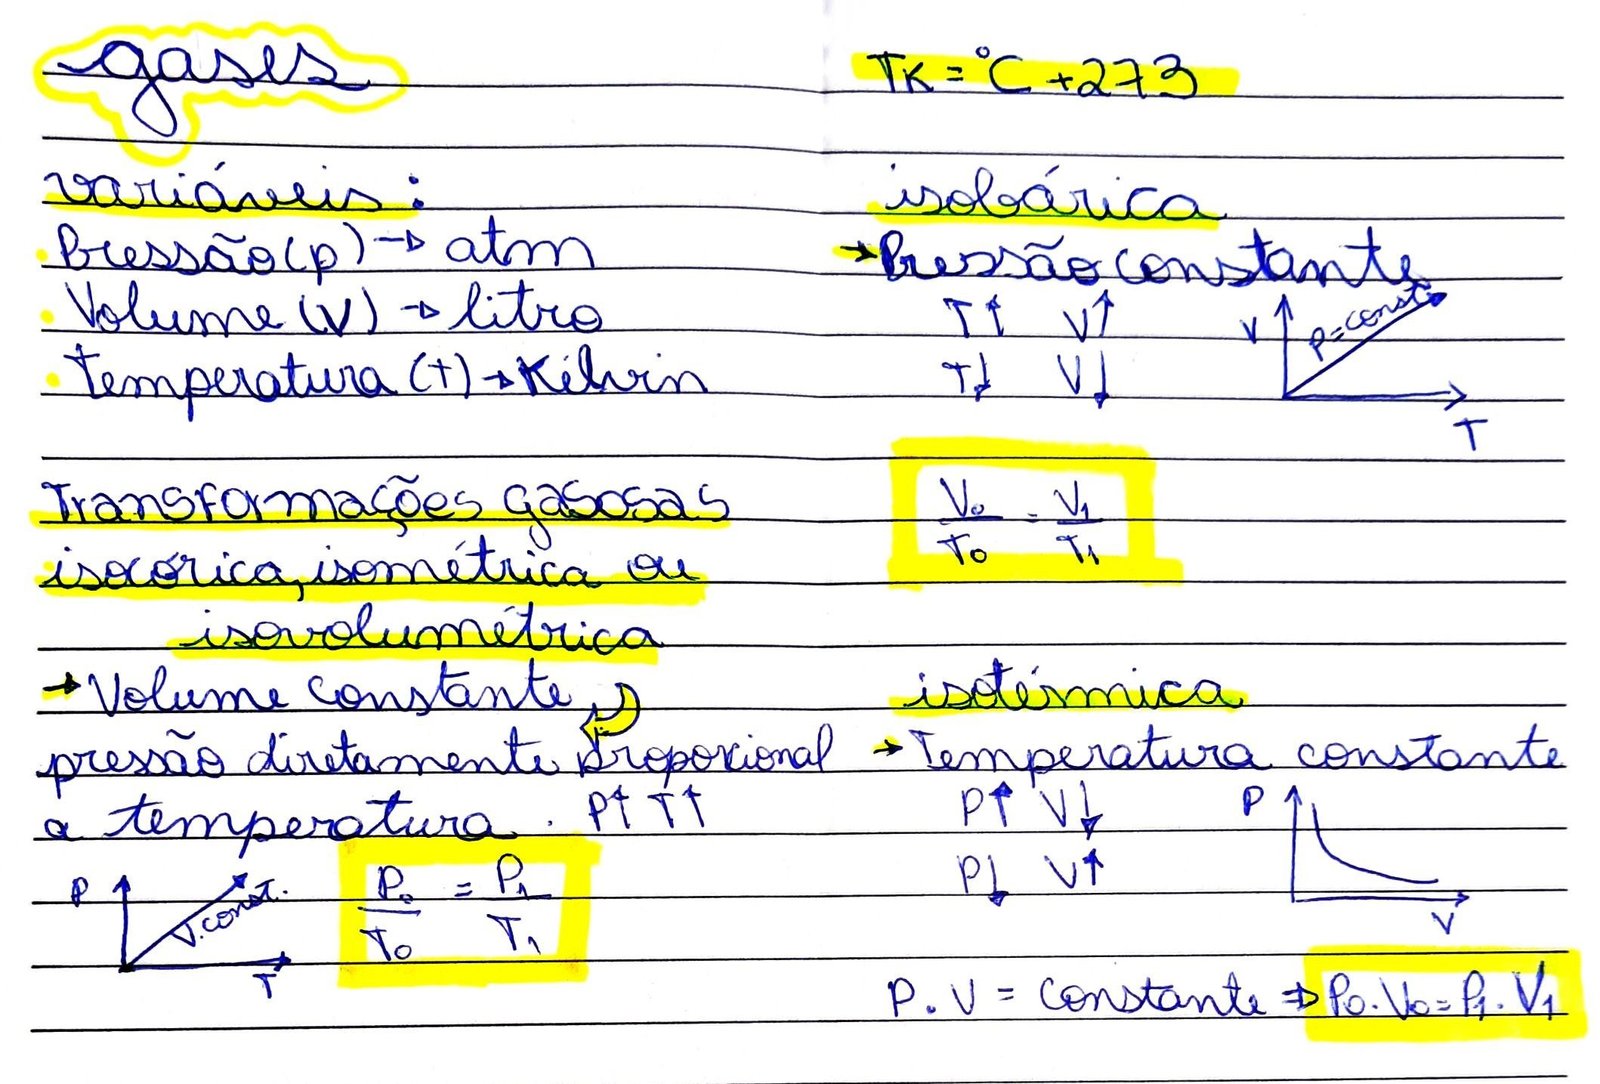 gases
variáveis:
· Pressão (p) → atm
· Volume (V) → litro
· Temperatura (T) → Kélvin
Transformações gasosas
isocórica, isométrica ou
isovolumétrica
→ Volume constante
pressão diretamente proporcional
a temperatura. P↑ T↑
P
V.const.
T
P₀/T₀ = P₁/T₁
TK = °C + 273
isobárica
→ Pressão constante
T↑ V↑
T↓ V↓
V
P=const.
T
V₀/T₀ = V₁/T₁
isotérmica
→ Temperatura constante
P↑ V↓
P↓ V↑
P
V
P.V = constante ⇒ P₀.V₀=P₁.V₁